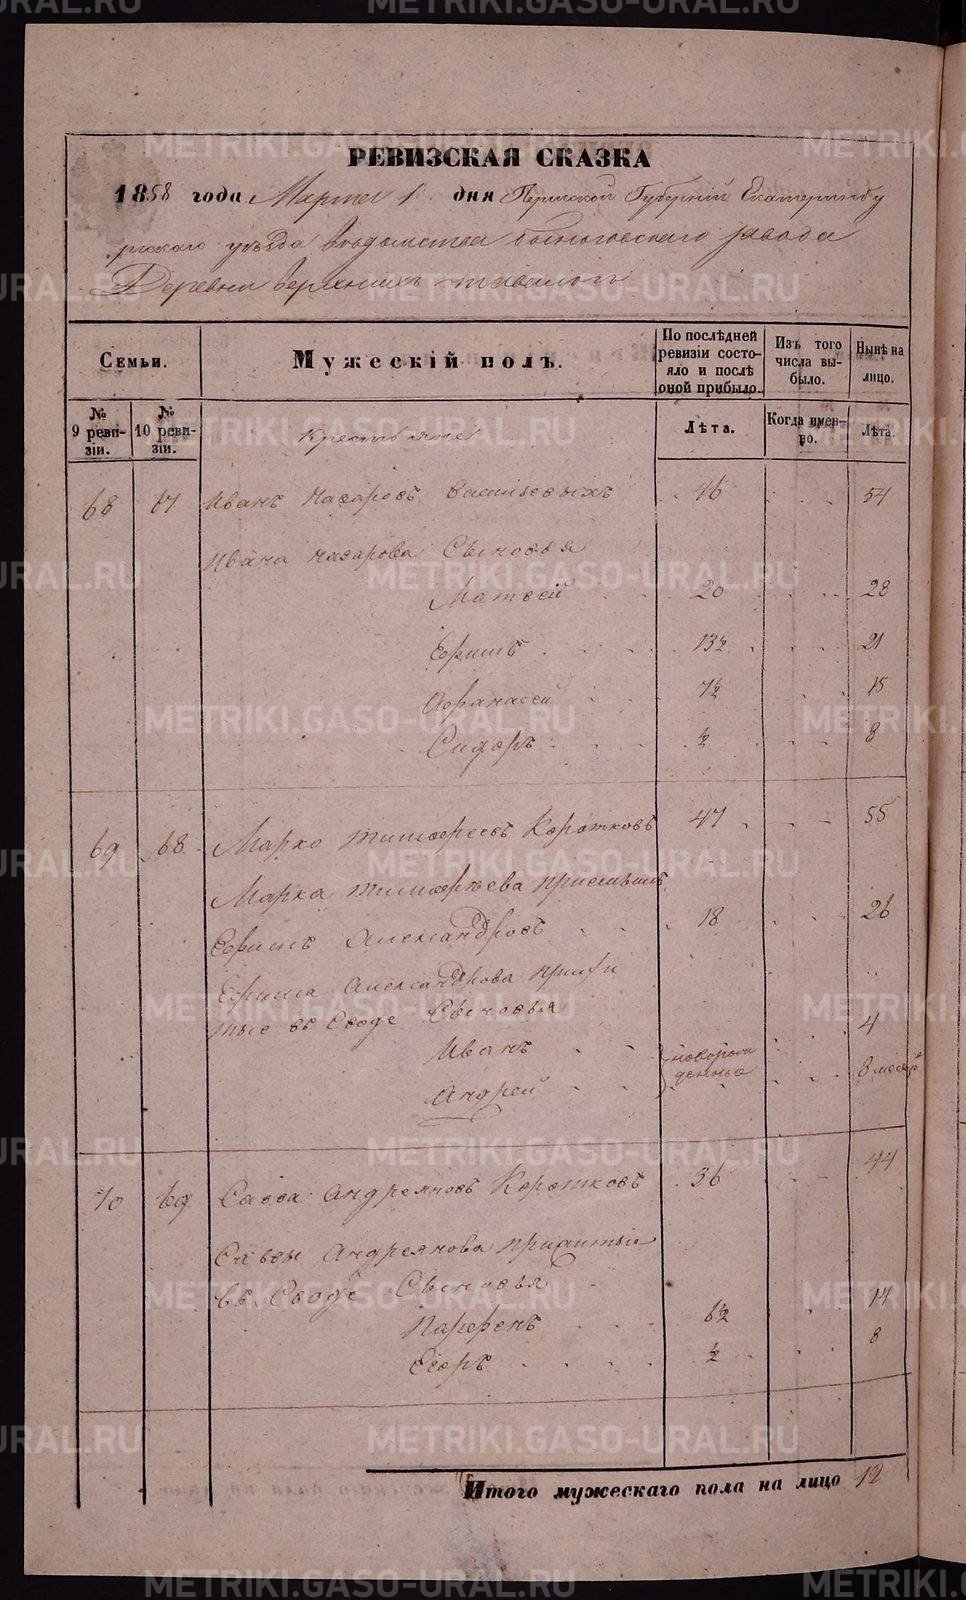 РЕВИЗСКАЯ СКАЗКА
1858 года Марта 1 дня Пермской Губерній Екатеринбу
ргскаго уѣзда Вѣдомства завода
Деревни верхнихъ тавалогъ
Семьи.
Мужескій полъ.
По послѣдней ревизіи состояло и послѣ оной прибыло.
Изъ того числа выбыло.
Нынѣ на лицо.
№ 9 ревизіи.
№ 10 ревизіи.
Крестьяне
Лѣта.
Когда именно.
Лѣта.
68 67 Иванъ Назаровъ Васильевыхъ 46 54
Ивана Назарова Сыновья
Матвей 20 28
Ефимъ 13½ 21
Афанасей 7½ 15
Сидоръ ½ 8
69 68 Марко Тимофеевъ Коротковъ 47 55
Марка Тимофѣева приемышъ
Ефимъ Александровъ 18 26
Ефима Александрова прижи
тые въ Сводѣ Сыновья
Иванъ новорожденные 4
Андрей 8 месяц
70 69 Савва Андреяновъ Коротковъ 36 44
Саввы Андреянова прижитыя
въ Сводѣ Сыновья
Парфенъ 6½ 14
Егоръ ½ 8
Итого мужескаго пола на лицо 12
METRIKI.GASO-URAL.RU